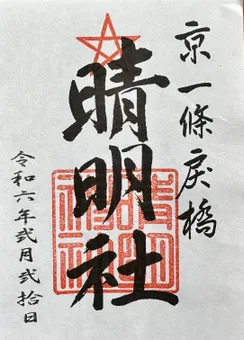 京一條戻橋
晴明社
令和六年弐月弐拾日